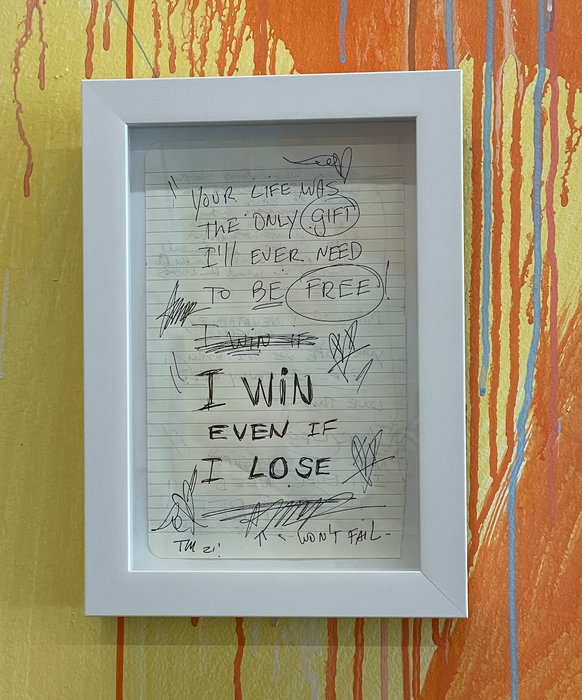 "YOUR LIFE WAS
THE ONLY GIFT
I'll EVER NEED
TO BE FREE!
I WIN IF
"I WIN
EVEN IF
I LOSE
WON'T FAIL-
TM 21'